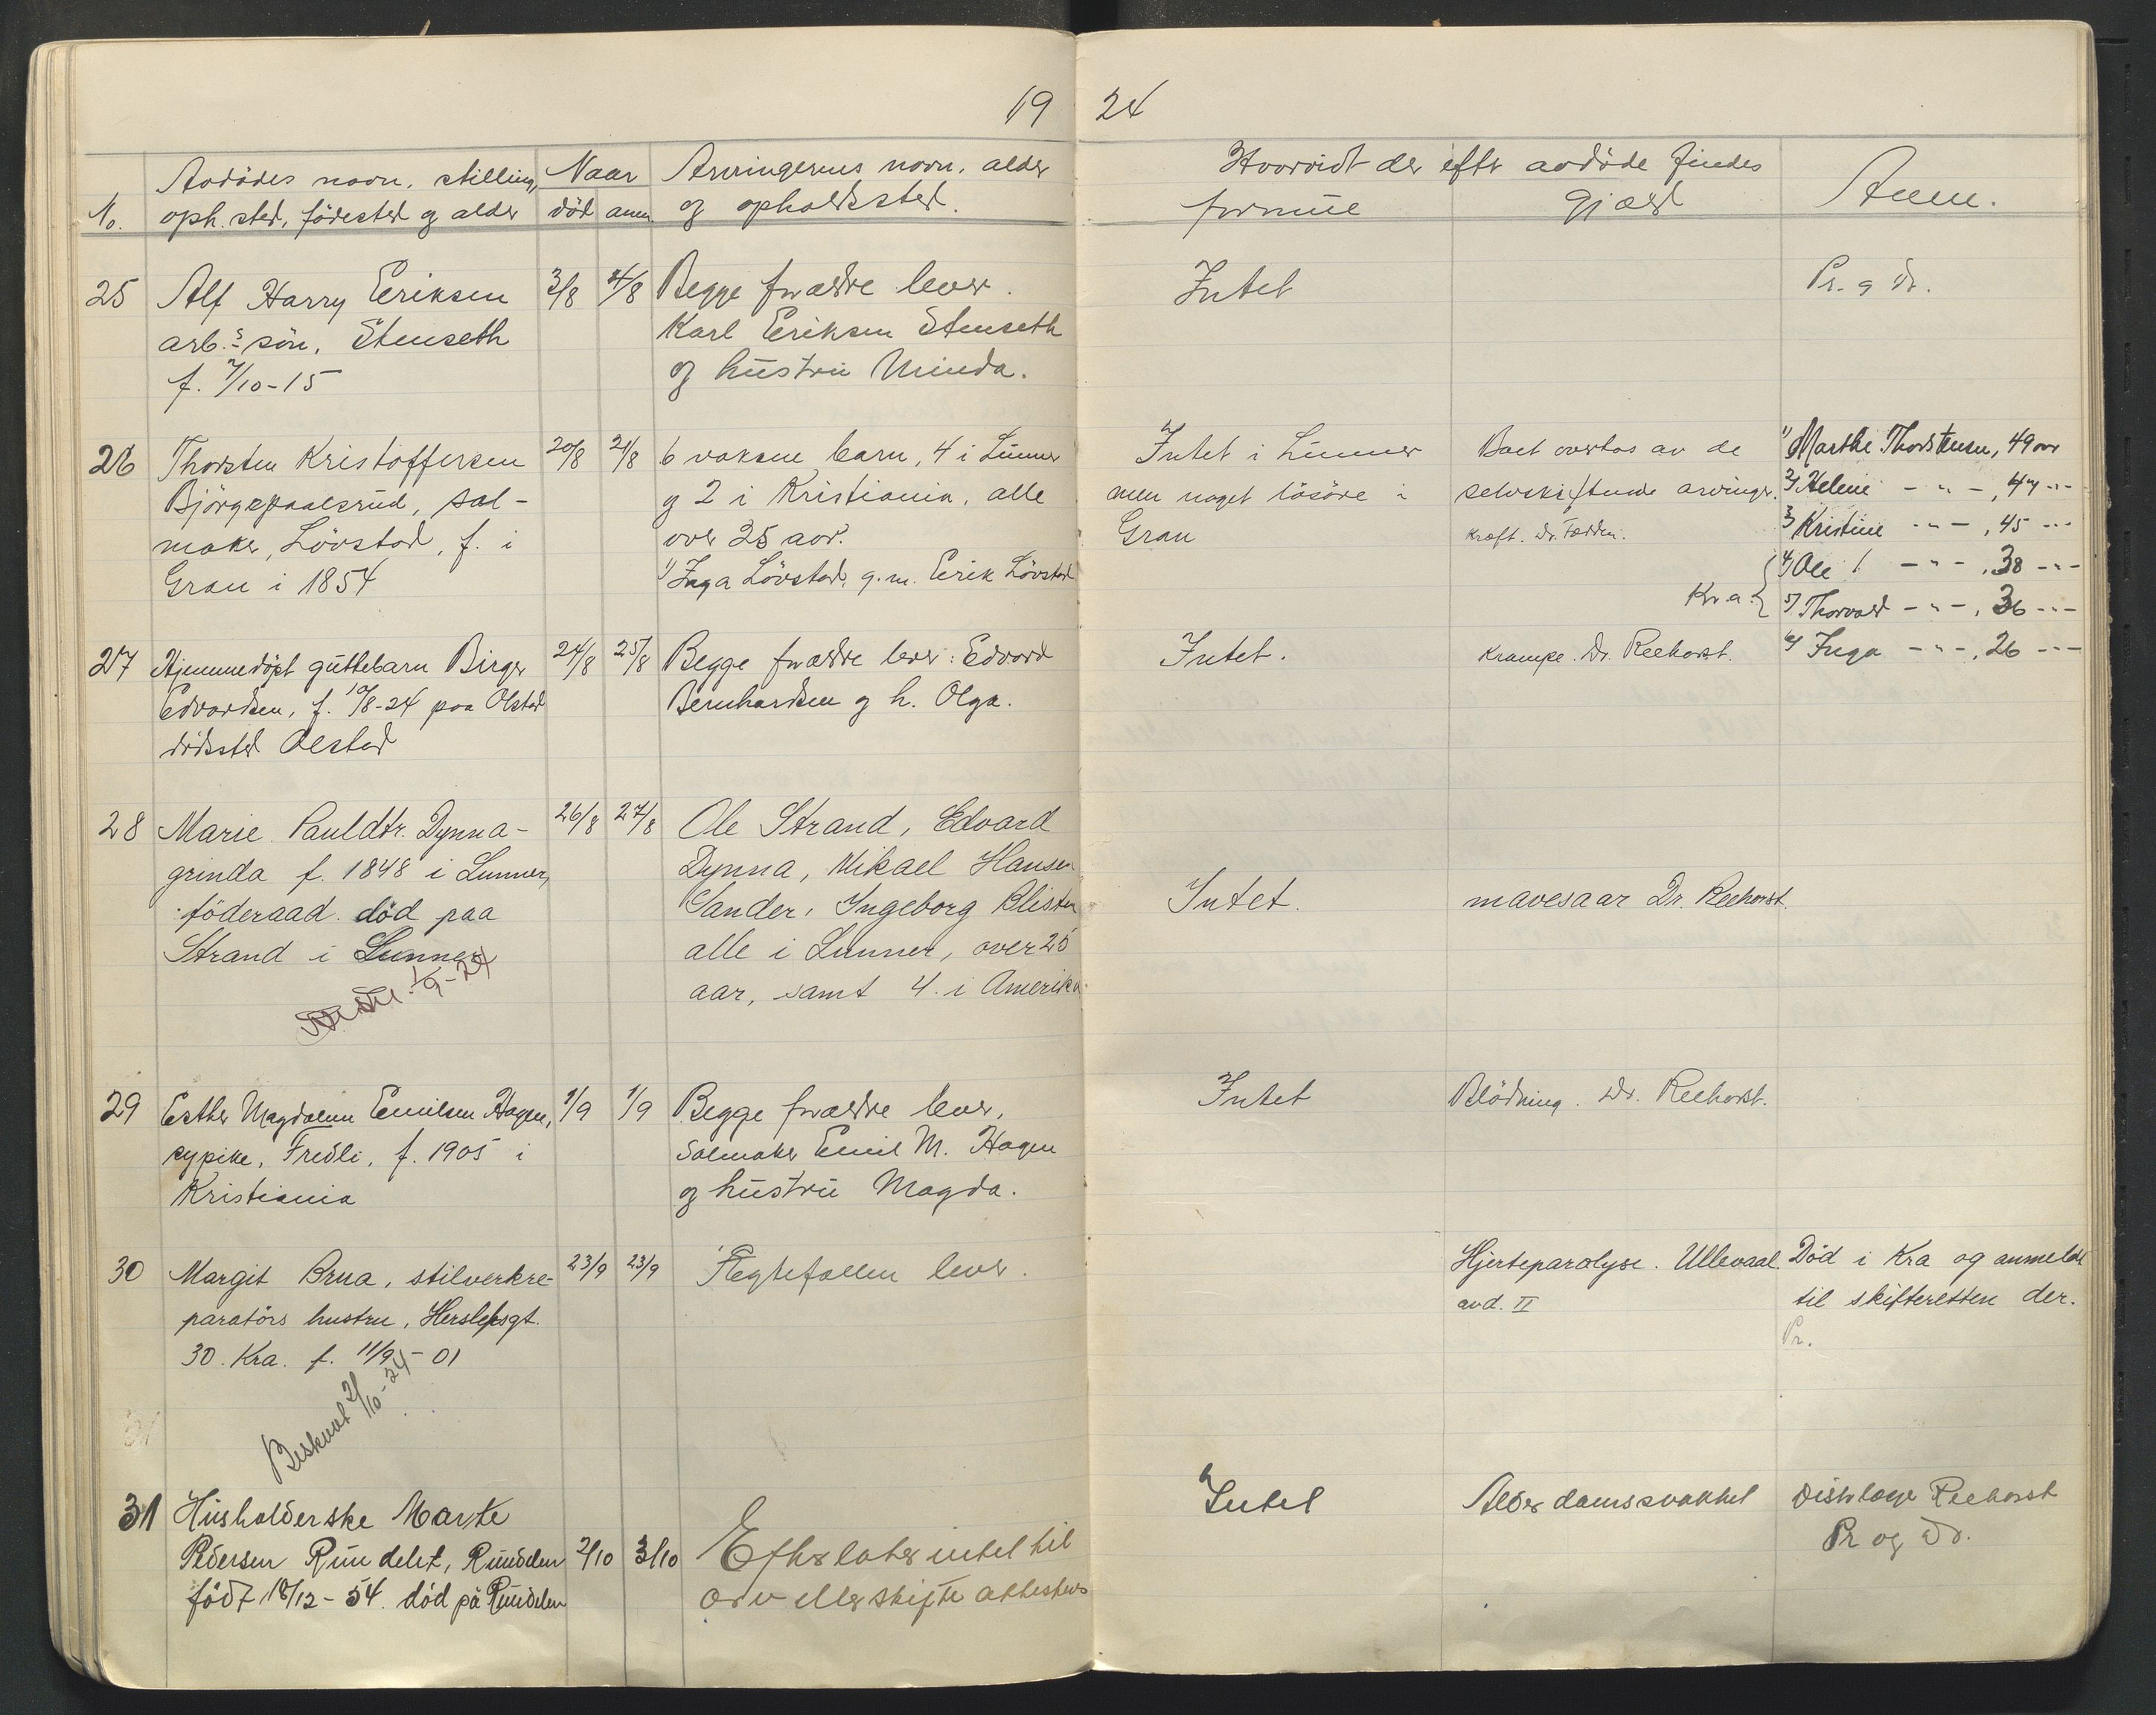 19 24
No.
Avdödes navn, stilling,
oph. sted, födested og alder
Naar
död anm
Arvingernes navn, alder
og opholdssted.
Hvorvidt der efter avdöde findes
formue
gjæld
Anm.
25
Alf Harry Eriksen
arb.s sön, Stenseth
f. 7/10-15
3/8
4/8
Begge forældre lever.
Karl Eriksen Stenseth
og hustru Minda.
Intet
Pr. og Dr.
26
Thorsten Kristoffersen
Björgepaalsrud, sal-
maker, Lövstad, f. i
Gran i 1854
20/8
21/8
6 voksne barn, 4 i Lunner
og 2 i Kristiania, alle
over 25 aar.
1) Inga Lövstad, g.m. Erik Lövstad
Intet i Lunner
men noget lösöre i
Gran
Boet overtas av de
selvskiftende arvinger.
Kræft. Dr. Fodden.
1) Marthe Thorstensen, 49 aar
2) Helene - " - , 47 - " -
3) Kristine - " - , 45 - " -
Kra. {
4) Ole - " - , 38 - " -
5) Thorvald - " - , 36 - " -
6) Inga - " - , 26 - " -
27
Hjemmedöpt guttebarn Birger
Edvardsen, f. 10/8-24 paa Olstad
dödssted Olstad
24/8
25/8
Begge forældre lever: Edvard
Bernhardsen og h. Olga.
Intet.
Krampe. Dr. Reehorst.
28
Marie Pauldtr. Dynna-
grinda f. 1848 i Lunner,
föderaad. död paa
Strand i Lunner
1/9-24
26/8
27/8
Ole Strand, Edvard
Dynna, Mikael Hansen
Sander, Ingeborg Blisten
alle i Lunner, over 25
aar, samt 4 i Amerika.
Intet.
mavesaar Dr. Reehorst.
29
Esther Magdalene Emilsen Hagen,
sypike, Fredli, f. 1905 i
Kristiania
1/9
1/9
Begge forældre lever.
Salmaker Emil M. Hagen
og hustru Magda.
Intet
Blödning. Dr. Reehorst.
30
Margit Brua, stilverkre-
paratörs hustru, Herslebsgt.
30. Kra. f. 11/9-01
Beskuvt 2/10-24
23/9
23/9
Ægtefællen lever.
Hjerteparalyse. Ullevaal
avd. II
Död i Kra og anmeldt
til skifteretten der.
Pr.
31
31
Husholderske Marte
Pedersen Rundelet, Rundelen
födt 18/12-54. död på Rundelen
2/10
3/10
Efterlater intet til
arv eller skifte attesteres
Intet
Alderdomssvakhet
Distrlæge Reehorst
Pr og Dd.